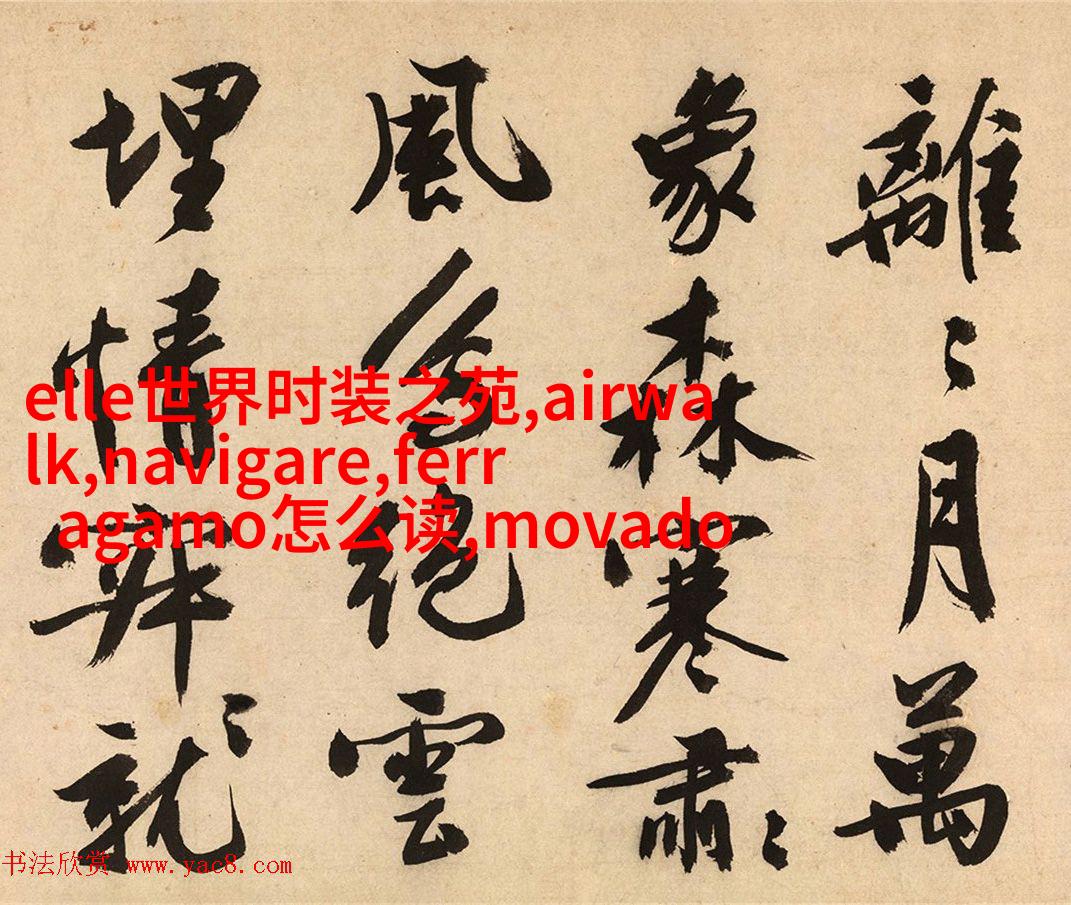 離〻月萬
象森寒肅〻
風絕雲
埋情就〻
elle世界时装之苑,airwa
lk,navigare,ferr
agamo怎么读,movado
书法欣赏 www.yac8.com